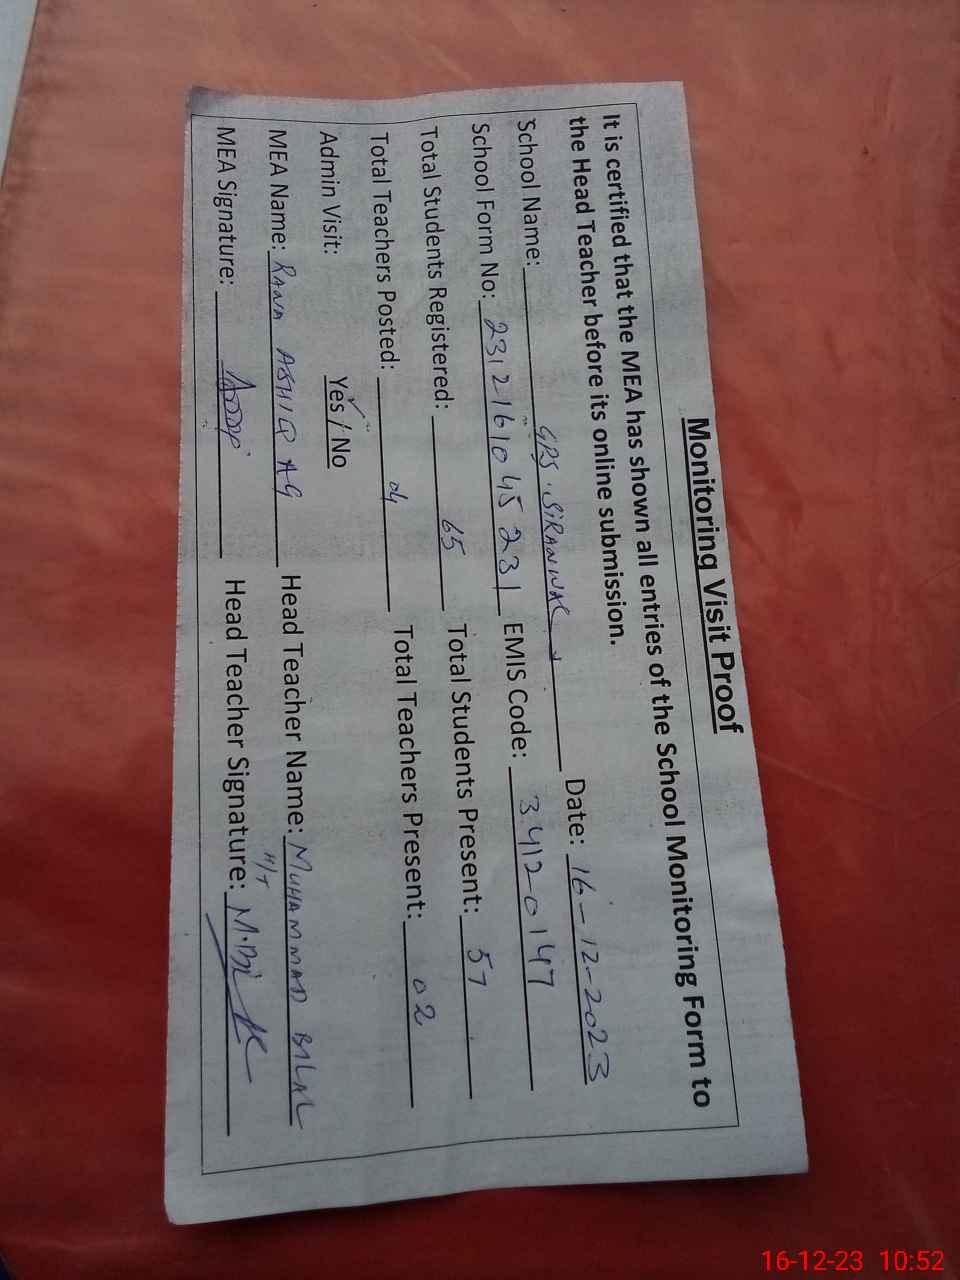 Monitoring Visit Proof
It is certified that the MEA has shown all entries of the School Monitoring Form to
the Head Teacher before its online submission.
School Name: GPS. SIRANWALI Date: 16-12-2023
School Form No: 2312161045231 EMIS Code: 34120147
Total Students Registered: 65 Total Students Present: 57
Total Teachers Posted: 04 Total Teachers Present: 02
Admin Visit: Yes / No
MEA Name: RANA ASHIQ Head Teacher Name: MUHAMMAD BILAL
MEA Signature: Head Teacher Signature: H/T
16-12-23 10:52